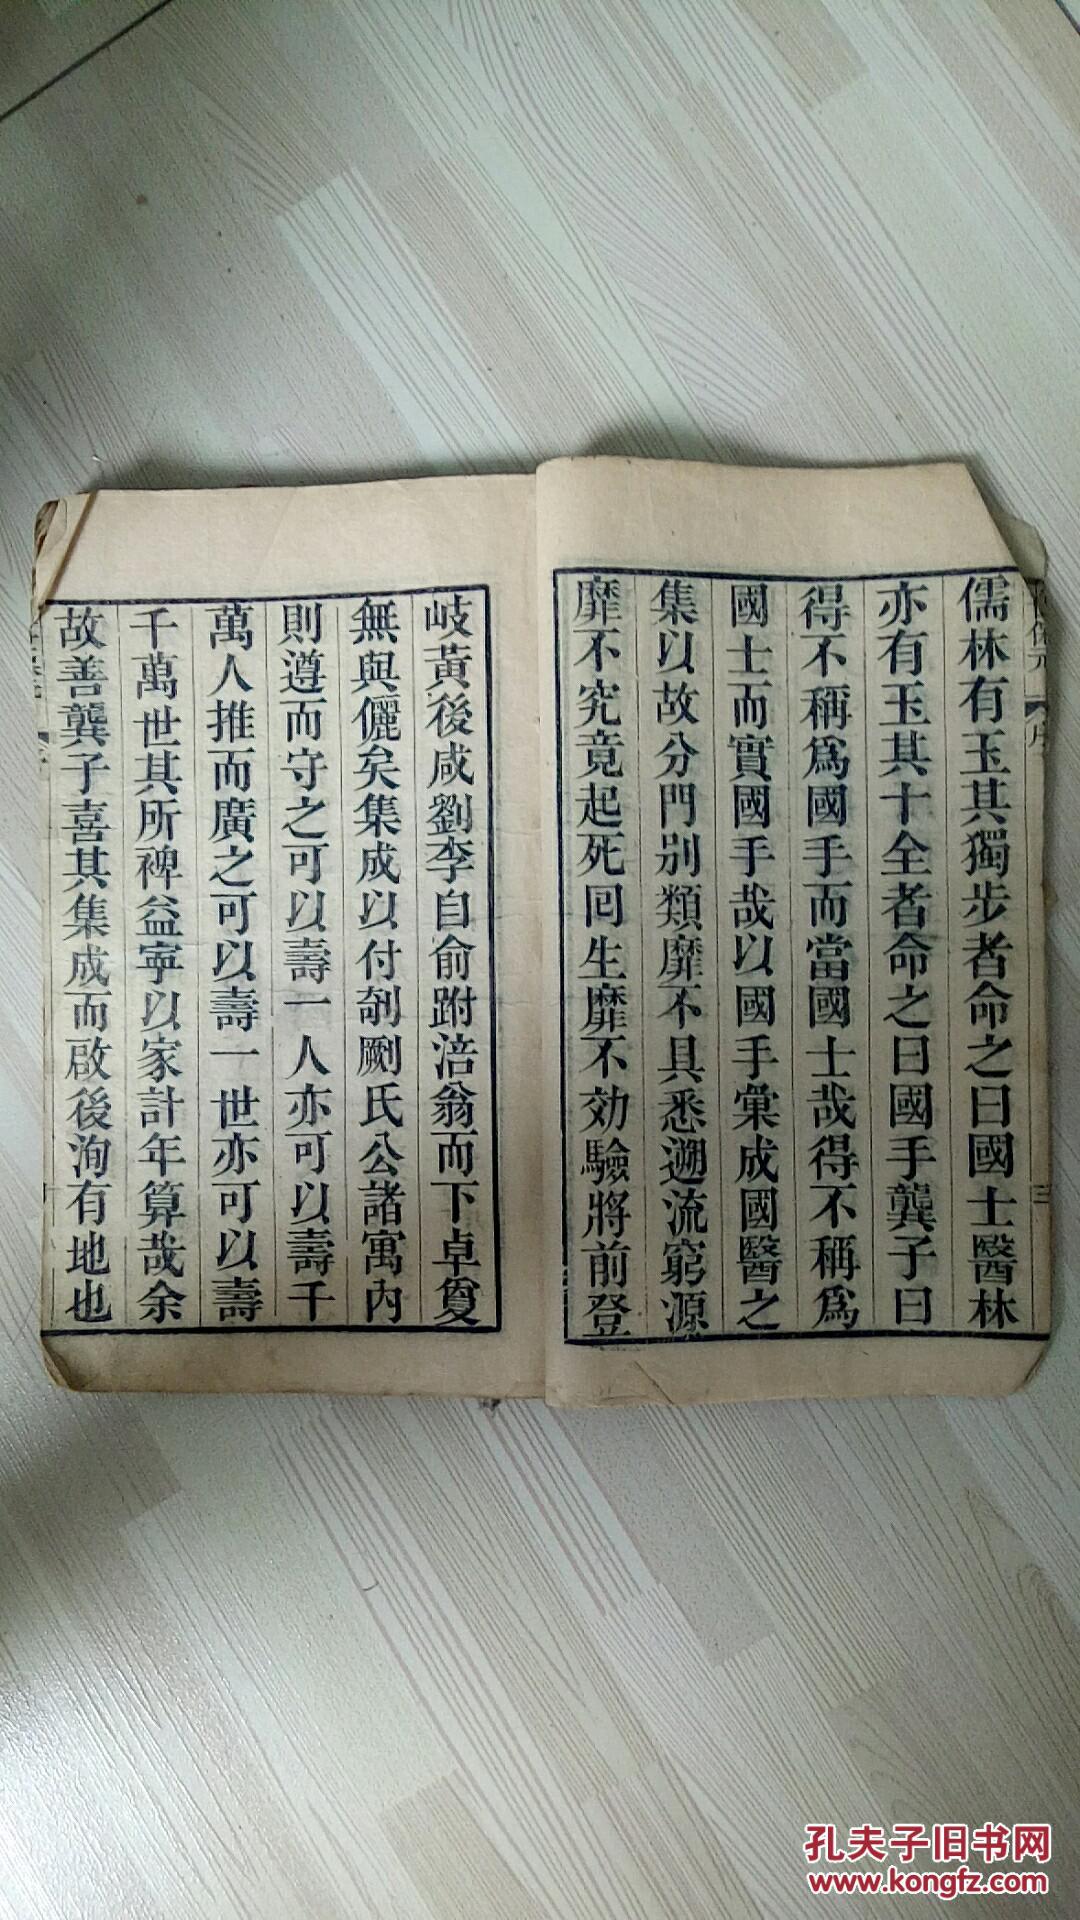 儒林有玉其獨步者命之曰國士醫林
亦有玉其十全者命之曰國手龔子曰
得不稱爲國手而當國士哉得不稱爲
國士而實國手哉以國手彙成國醫之
集以故分門别類靡不具悉遡流窮源
靡不究竟起死囘生靡不効驗將前登
岐黃後咸劉李自俞跗涪翁而下卓夐
無與儷矣集成以付剞劂氏公諸寓內
則遵而守之可以壽一人亦可以壽千
萬人推而廣之可以壽一世亦可以壽
千萬世其所裨益寧以家計年算哉余
故善龔子喜其集成而啟後洵有地也
三
孔夫子旧书网
www.kongfz.com